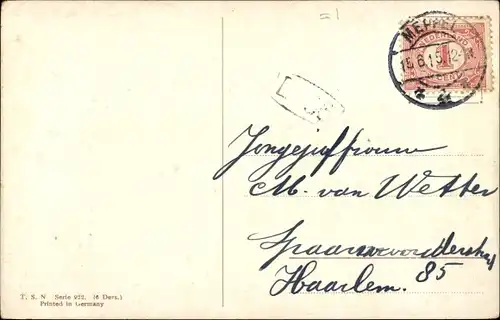 =1
MEPPEL
15.6.15.12-
NEDERLAND
1
Jongejuffrouw
M. van Wetter
Spaarnwouderstraat
85
Haarlem.
T. S. N Serie 922. (6 Dess.)
Printed in Germany